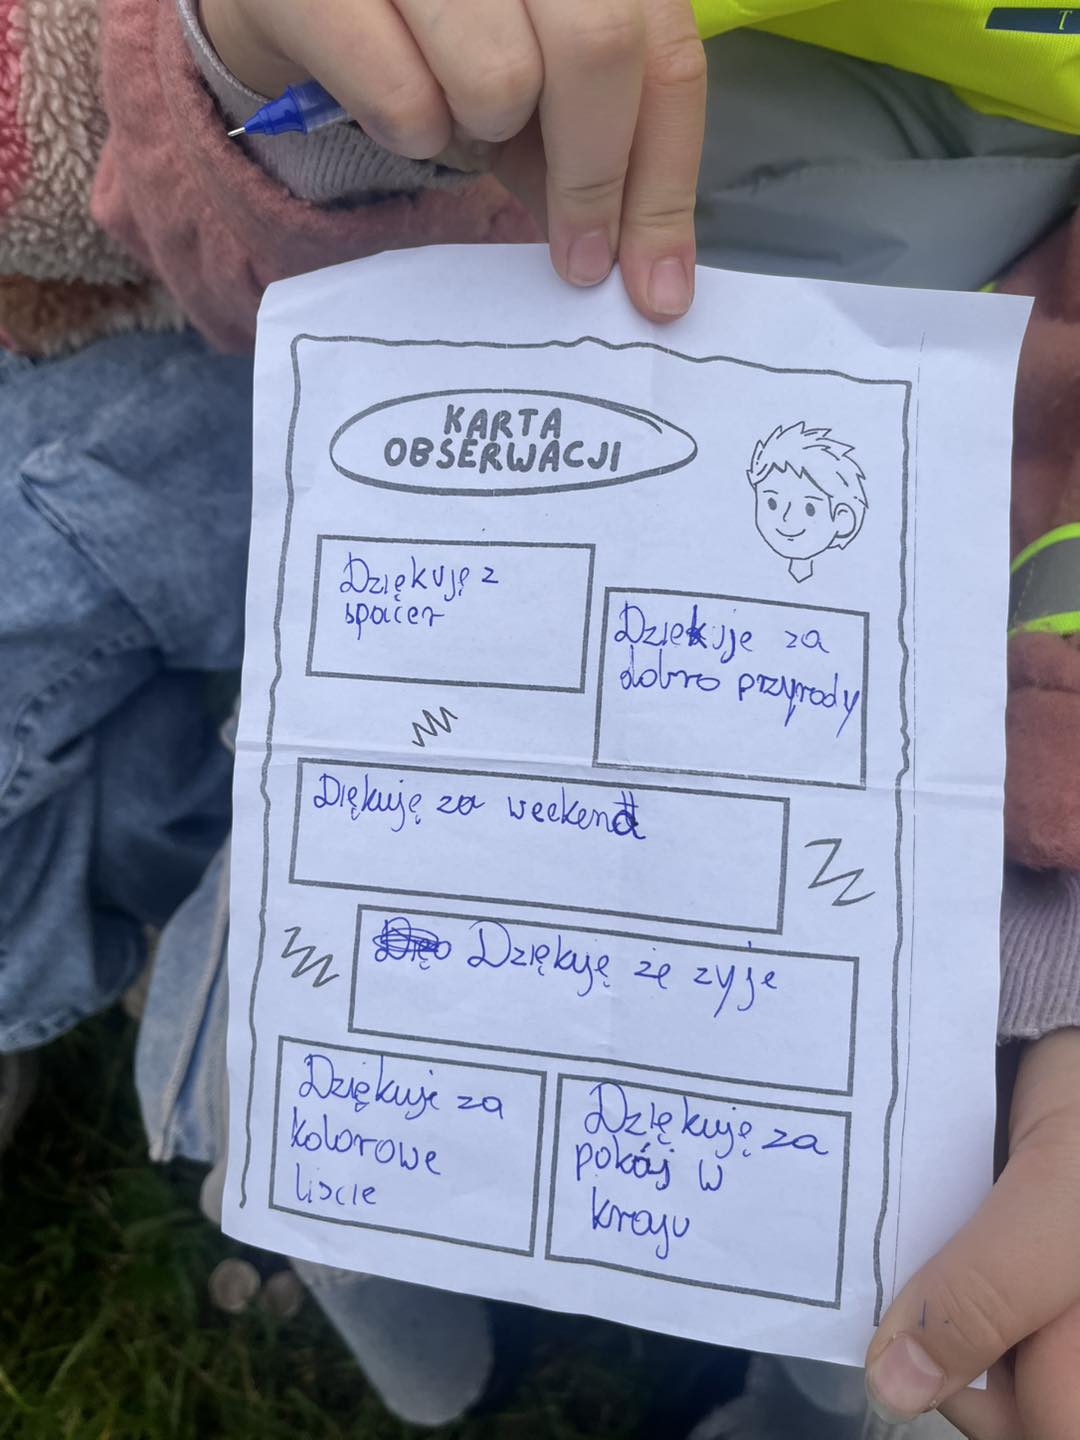 T
KARTA
OBSERWACJI
Dziękuję z
spacer
Dziekuje za
dobro przyrody
Diękuję za weekend
Dziękuję że zyje
Dziękuje za
kolorowe
liscie
Dziękuję za
pokój w
kraju